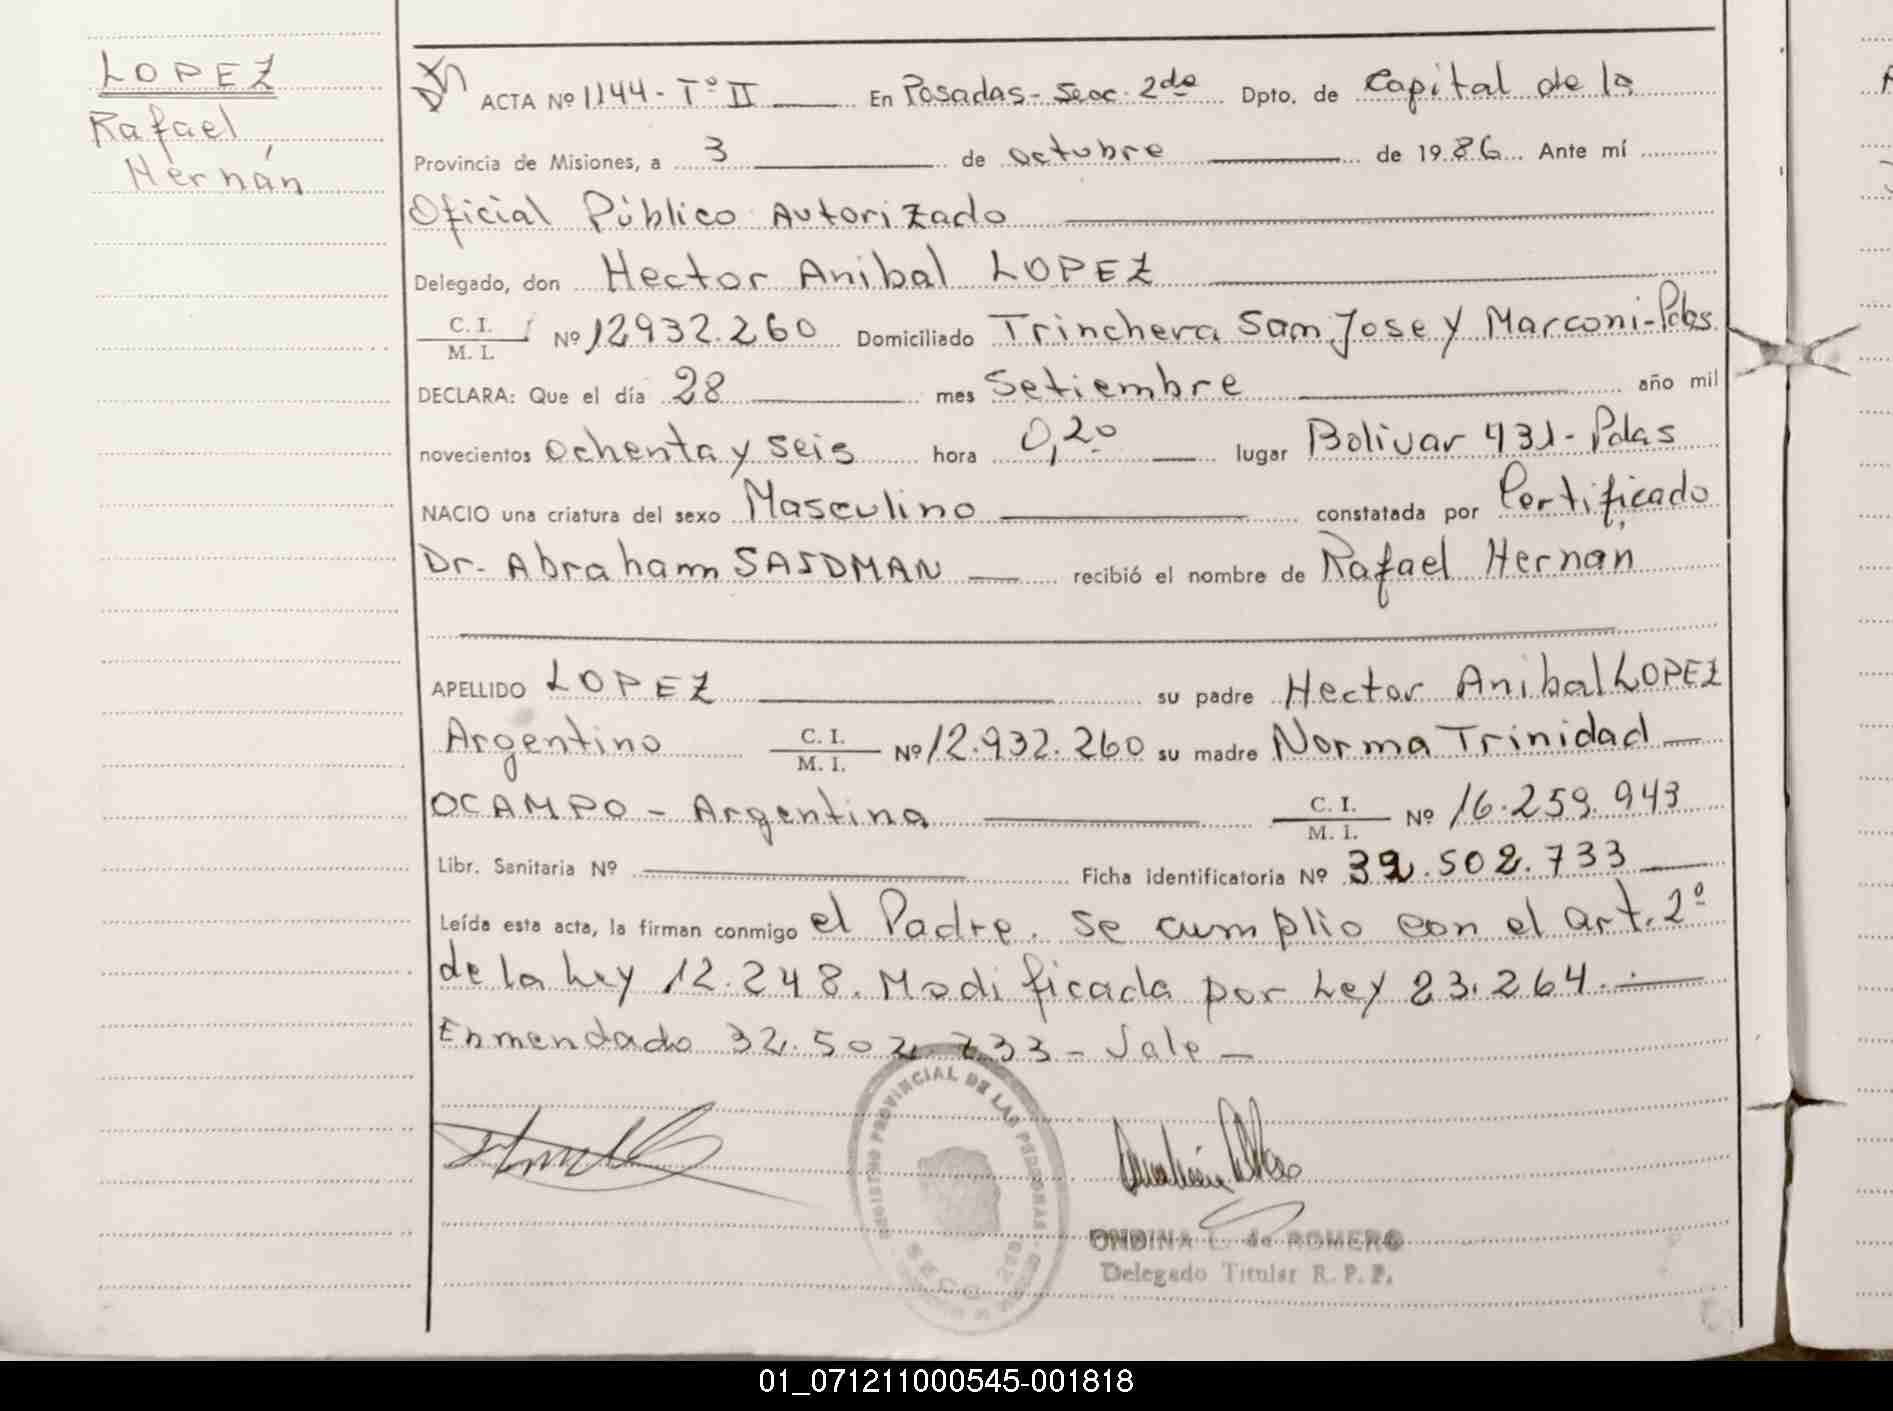 LOPEZ
Rafael
Hernán
ACTA Nº 1144 - Tº II En Posadas - Secc. 2da Dpto. de Capital de la
Provincia de Misiones, a 3 de octubre de 1986 Ante mí
Oficial Público Autorizado
Delegado, don Hector Anibal LOPEZ
C. I. / M. I. Nº 12932.260 Domiciliado Trinchera San Jose y Marconi - Pdas.
DECLARA: Que el día 28 mes Setiembre año mil
novecientos ochenta y seis hora 0,20 lugar Bolivar 431 - Pdas
NACIO una criatura del sexo Masculino constatada por Certificado
Dr. Abraham recibió el nombre de Rafael Hernán
APELLIDO LOPEZ su padre Hector Anibal LOPEZ
Argentino C. I. / M. I. Nº 12.932.260 su madre Norma Trinidad
OCAMPO - Argentina C. I. / M. I. Nº 16.259.943
Libr. Sanitaria Nº Ficha identificatoria Nº 32.502.733
Leída esta acta, la firman conmigo el Padre. Se cumplio con el art. 2º
de la Ley 12.248. Modificada por Ley 23.264.
Enmendado 32.502.733 - Vale -
REGISTRO PROVINCIAL DE LAS PERSONAS
SECC. 2da
ONDINA L. de ROMERO
Delegado Titular R. P. P.
01_071211000545-001818